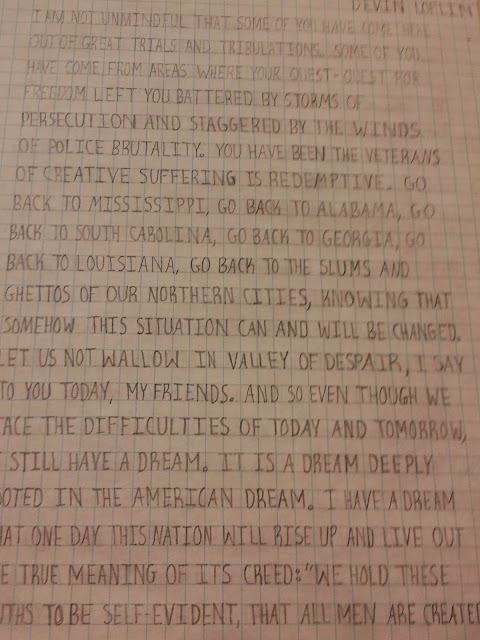 DEVIN LOFLIN
I AM NOT UNMINDFUL THAT SOME OF YOU HAVE COME HERE
OUT OF GREAT TRIALS AND TRIBULATIONS. SOME OF YOU
HAVE COME FROM AREAS WHERE YOUR QUEST-QUEST FOR
FREEDOM LEFT YOU BATTERED BY STORMS OF
PERSECUTION AND STAGGERED BY THE WINDS
OF POLICE BRUTALITY. YOU HAVE BEEN THE VETERANS
OF CREATIVE SUFFERING IS REDEMPTIVE. GO
BACK TO MISSISSIPPI, GO BACK TO ALABAMA, GO
BACK TO SOUTH CAROLINA, GO BACK TO GEORGIA, GO
BACK TO LOUISIANA, GO BACK TO THE SLUMS AND
GHETTOS OF OUR NORTHERN CITIES, KNOWING THAT
SOMEHOW THIS SITUATION CAN AND WILL BE CHANGED.
LET US NOT WALLOW IN VALLEY OF DESPAIR, I SAY
TO YOU TODAY, MY FRIENDS. AND SO EVEN THOUGH WE
ACE THE DIFFICULTIES OF TODAY AND TOMORROW,
I STILL HAVE A DREAM. IT IS A DREAM DEEPLY
OOTED IN THE AMERICAN DREAM. I HAVE A DREAM
HAT ONE DAY THIS NATION WILL RISE UP AND LIVE OUT
E TRUE MEANING OF ITS CREED: "WE HOLD THESE
UTHS TO BE SELF-EVIDENT, THAT ALL MEN ARE CREATED